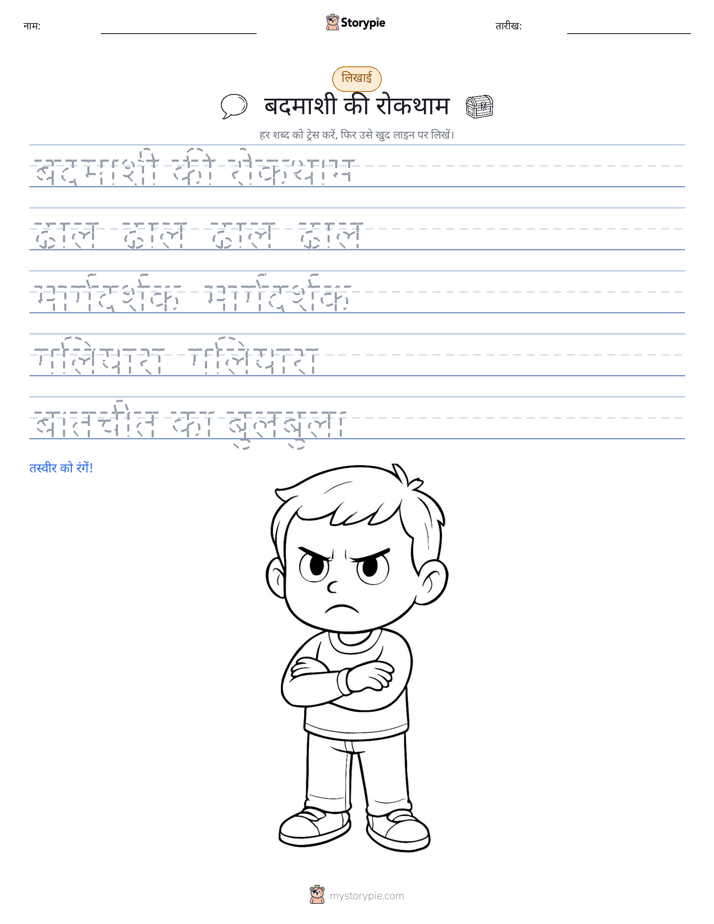 नाम:
Storypie
तारीख:
लिखाई
बदमाशी की रोकथाम
हर शब्द को ट्रेस करें, फिर उसे खुद लाइन पर लिखें।
बदमाशी की रोकथाम
ढाल ढाल ढाल ढाल
मार्गदर्शक मार्गदर्शक
गलियारा गलियारा
बातचीत का बुलबुला
तस्वीर को रंगें!
mystorypie.com